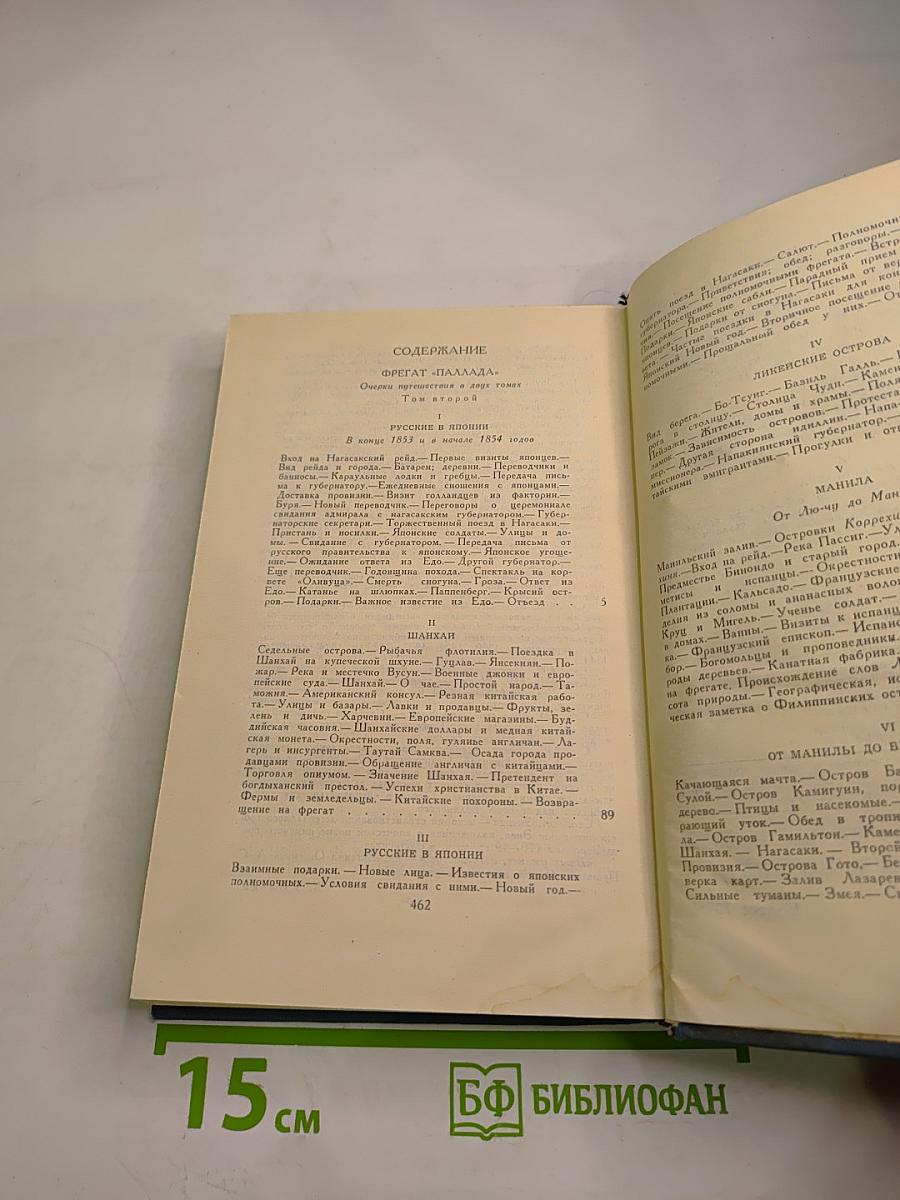 СОДЕРЖАНИЕ
ФРЕГАТ «ПАЛЛАДА»
Очерки путешествия в двух томах
Том второй
I
РУССКИЕ В ЯПОНИИ
В конце 1853 и в начале 1854 годов
Вход на Нагасакский рейд.— Первые визиты японцев.—
Вид рейда и города.— Батареи; деревни.— Переводчики и
баниосы.— Караульные лодки и гребцы.— Передача пись-
ма к губернатору.—Ежедневные сношения с японцами.—
Доставка провизии.— Визит голландцев из фактории.—
Буря.— Новый переводчик.— Переговоры о церемониале
свидания адмирала с нагасакским губернатором.— Губер-
наторские секретари.— Торжественный поезд в Нагасаки.—
Пристань и носилки.— Японские солдаты.— Улицы и до-
мы. — Свидание с губернатором. — Передача письма от
русского правительства к японскому.— Японское угоще-
ние.— Ожидание ответа из Едо.— Другой губернатор.—
Еще переводчик.— Годовщина похода.— Спектакль на кор-
вете «Оливуца».— Смерть сиогуна.— Гроза.— Ответ из
Едо.— Катанье на шлюпках.— Паппенберг.— Крысий ост-
ров.— Подарки.— Важное известие из Едо.— Отъезд . . 5
II
ШАНХАЙ
Седельные острова.— Рыбачья флотилия.— Поездка в
Шанхай на купеческой шхуне.— Гуцлав.— Янсекиян.— По-
жар.— Река и местечко Вусун.— Военные джонки и евро-
пейские суда.— Шанхай.— О чае.— Простой народ.— Та-
можня.— Американский консул.— Резная китайская рабо-
та.— Улицы и базары.— Лавки и продавцы.— Фрукты, зе-
лень и дичь.— Харчевни.— Европейские магазины.— Буд-
дийская часовня.— Шанхайские доллары и медная китай-
ская монета.— Окрестности, поля, гулянье англичан.— Ла-
герь и инсургенты.— Таутай Самква.— Осада города про-
давцами провизии.— Обращение англичан с китайцами.—
Торговля опиумом. — Значение Шанхая. — Претендент на
богдыханский престол. — Успехи христианства в Китае. —
Фермы и земледельцы. — Китайские похороны. — Возвра-
щение на фрегат . . . . . . . . . . . . . . 89
III
РУССКИЕ В ЯПОНИИ
Взаимные подарки. — Новые лица. — Известия о японских
полномочных.— Условия свидания с ними.— Новый год.—
462
поезд в Нагасаки.— Салют.— Полномочн
губернатора.— Приветствия; обед; разговоры.—
Посещение полномочными фрегата.— Встр
Подарки.— Японские сабли.— Парадный прием
японцев.— Подарки от сиогуна.— Письма от вер
Частые поездки в Нагасаки для кон
Японский Новый год.— Вторичное посещение
номочными.— Прощальный обед у них.— От
IV
ЛИКЕЙСКИЕ ОСТРОВА
Вид берега.— Бо-Тсунг.— Базиль Галль.—
рога в столицу.— Столица Чуди.— Камен
Пейзажи.— Жители, домы и храмы.— Поля
замок.— Зависимость островов.— Протеста
нер.— Другая сторона идиллии.— Напа-
миссионера.— Напакиянский губернатор.—
тайскими эмигрантами.— Прогулки и от
V
МАНИЛА
От Лю-чу до Ман
Манильский залив.— Островки Коррехи
хиня.— Вход на рейд.— Река Пассиг.— Ул
Предместье Бинондо и старый город.
метисы и испанцы.— Окрестности
Плантации.— Кальсадо.— Французские
делия из соломы и ананасных воло
Круц и Мигель.— Ученье солдат.—
в домах.— Ванны.— Визиты к испанц
ка.— Французский епископ.— Испанс
бор.— Богомольцы и проповедники.
роды деревьев.— Канатная фабрика.
на фрегате. Происхождение слов Л
сота природы.— Географическая, ис
ческая заметка о Филиппинских ост
VI
ОТ МАНИЛЫ ДО
Качающаяся мачта.— Остров Ба
Сулой.— Остров Камигуин, пор
дерево.— Птицы и насекомые.—
рающий уток.— Обед в тропи
ла.— Остров Гамильтон.— Каме
Шанхая. — Нагасаки. — Второй
Провизия.— Острова Гото.— Бе
верка карт.— Залив Лазарев
Сильные туманы.— Змея.— Си
15 см
БФ БИБЛИОФАН